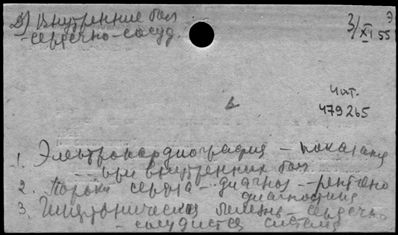 2) Внутренние бол
- сердечно-сосуд.
3/XI 55
Э
Чит.
479265
1. Электрокардиография - показания
- при внутренних бол
2. Пороки сердца - диагноз - рентгено
диагностика
3. Гипертоническая болезнь - сердечно
- сосудистая система